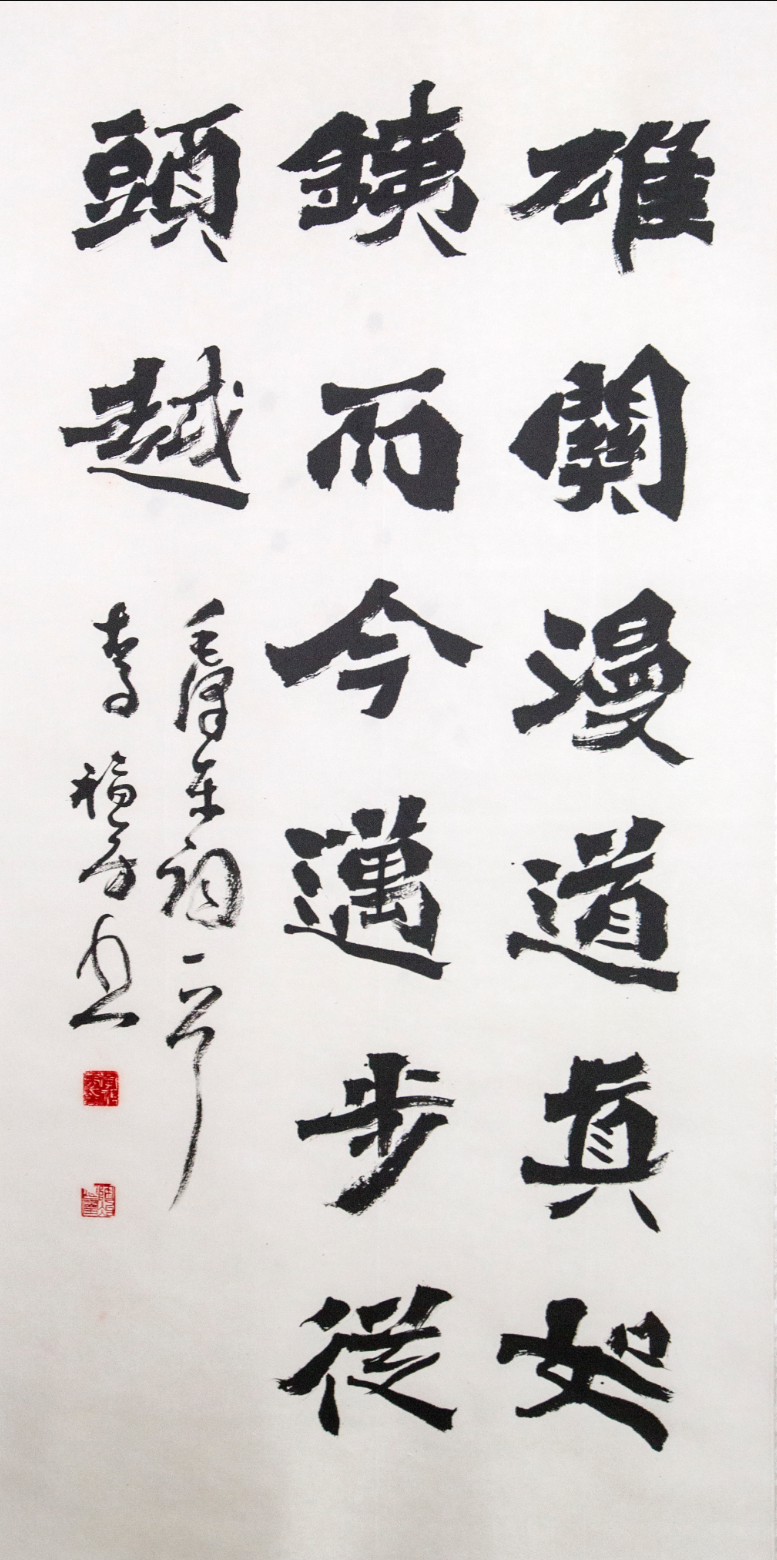 雄關漫道真如
鐵而今邁步從
頭越
毛澤東詞一首
李福安書